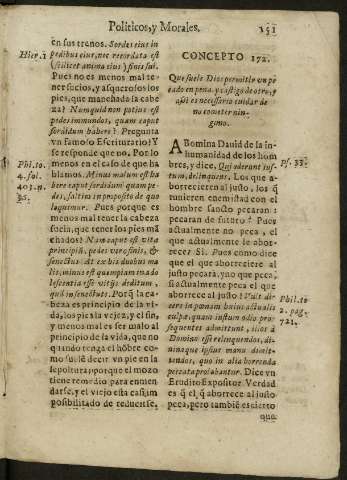 Politicos, y Morales.
151
en sus trenos. Sordes eius in
Hier. 1
pedibus eius, nec recordata est
(scilicet anima eius) finis sui.
Pues no es menos mal te-
ner sucios, y asquerosos los
pies, que manchada la cabe-
za? Numquid non potius est
pedes immundos, quam caput
sordidum habere? Pregunta
vn famoso Escriturario? Y
se responde que no. Por lo
menos en el caso de que ha
blamos. Minus malum est ha
Phi. to.
4. fol.
403. n.
35.
bere caput sordidum quam pe-
des, saltim in proposito de quo
loquimur. Pues porque es
menos mal tener la cabeza
sucia, que tener los pies má
chados? Nam caput est vita
principiũ, pedes verò finis, &
senectus. At ex his duobus ma
lis, minus est quempiam in ado
lescentia esse vitijs deditum,
quã in senectute. Porq̃ la ca-
beza es principio de la vi-
da, los pies la vejez, y el fin,
y menos mal es ser malo al
principio de la vida, que no
quando tenga el hõbre co-
mo suele decir vn pie en la
sepoltura; porque el mozo
tiene remedio para enmen
darse, y el viejo esta casi im
posibilitado de reducirse.
CONCEPTO 172.
Que suele Dios permitir vn pe
cado en pena, y castigo de otro, y
assi es necessario cuidar de
no cometer nin-
guno.
ABomina Dauid de la in-
humanidad de los hom
bres, y dice. Qui oderunt ius-
Ps. 33.
tum, delinquent. Los que a-
borrecieren al justo, los q̃
tuuieren enemistad con el
hombre sancto pecaran:
pecaran de futuro? Pues
actualmente no peca, el
que actualmente le abor-
rece? Si. Pues como dice
que el que aborreciere al
justo pecarà, y no que peca,
si actualmente peca el que
aborrece al justo? Vult di-
cere in pœnam huius actualis
Phil. to
2. pag.
721.
culpæ, quam iustum odio pro-
sequentes admittunt, illos à
Domino esse relinquendos, di-
uinaque ipsius manu dimit-
tendos, quo in alia horrenda
peccata prolabantur. Dice vn
Erudito Expositor. Verdad
es q̃ el, q̃ aborrece al justo
peca, pero tambiẽ es cierto
que